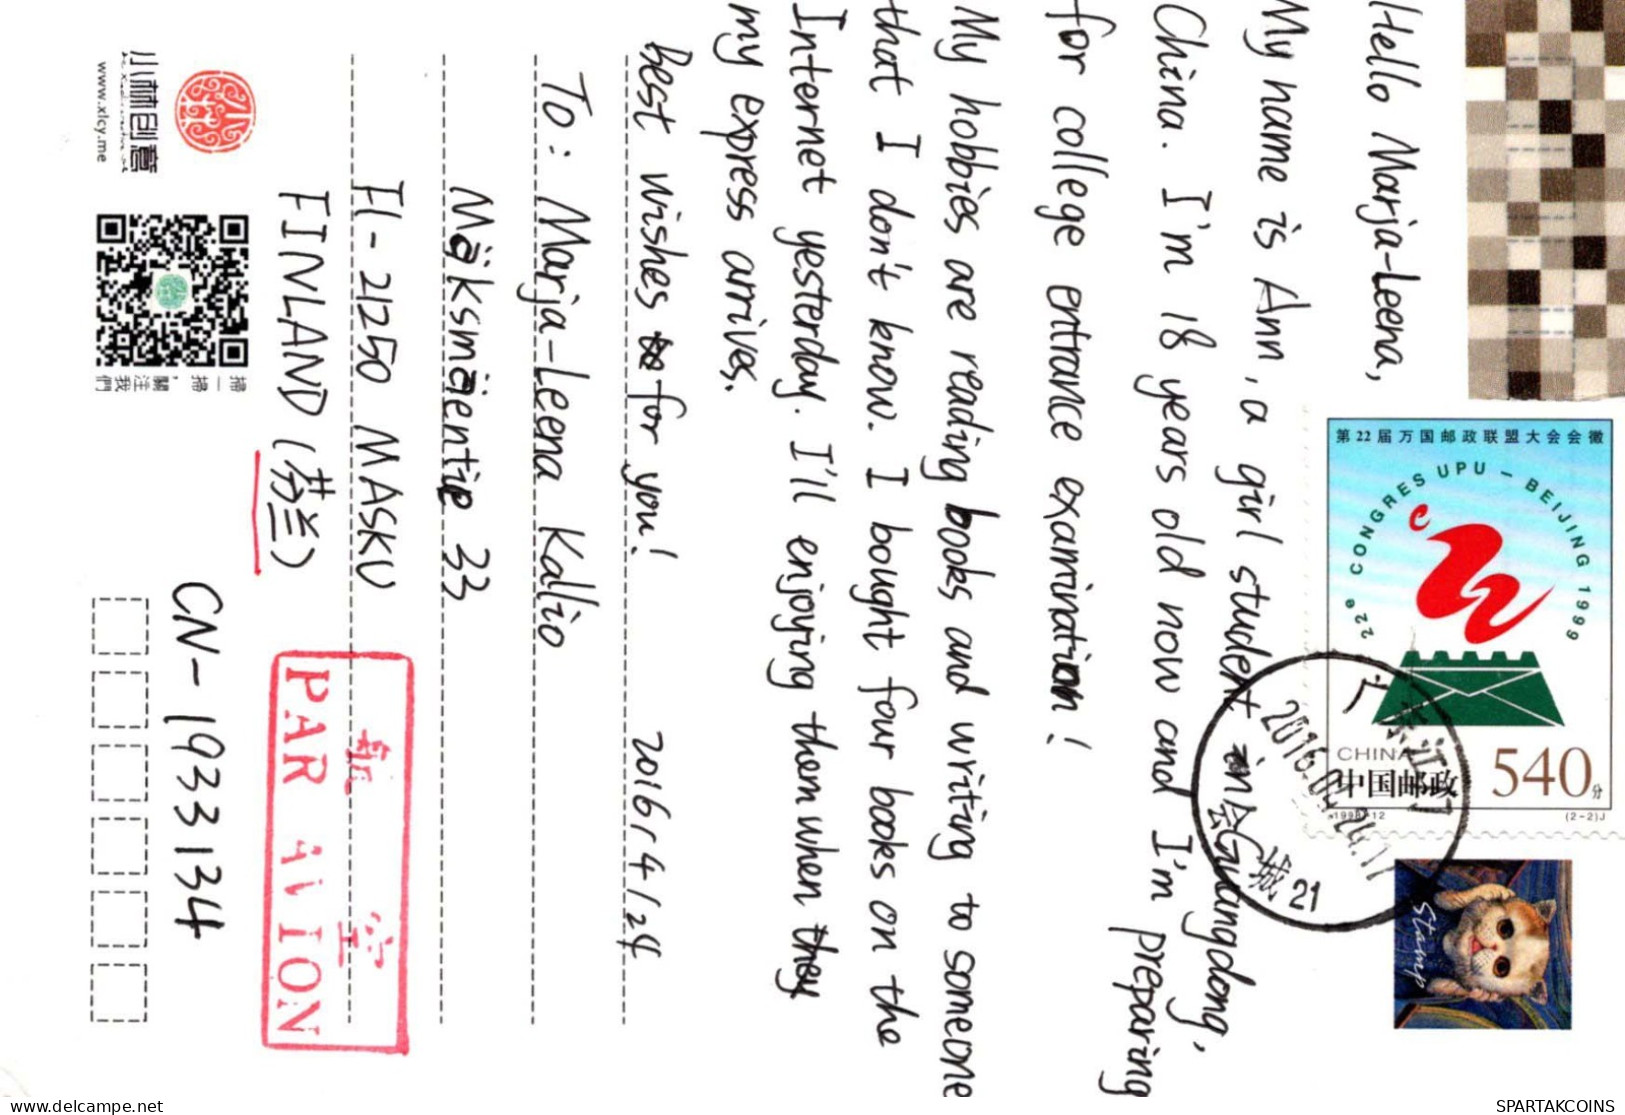 Hello Marja-Leena,
My name is Ann, a girl student in Guangdong,
China. I'm 18 years old now and I'm preparing
for college entrance examination!
My hobbies are reading books and writing to someone
that I don't know. I bought four books on the
Internet yesterday. I'll enjoying them when they
my express arrives.
Best wishes to for you! 2016/4/24
To: Marja-Leena Kallio
Mäksmäentie 33
FI-21250 MASKU
FINLAND (芬兰)
CN-1933134
航空
PAR AVION
小林创意
www.xlcy.me
掃一掃，關注我們
第22届万国邮政联盟大会会徽
22e CONGRES UPU - BEIJING 1999
CHINA
中国邮政
540分
(2-2)J
广东江门
2016.04.24.17
会城 21
Stamp
www.spartakcoins.com
SPARTAKCOINS